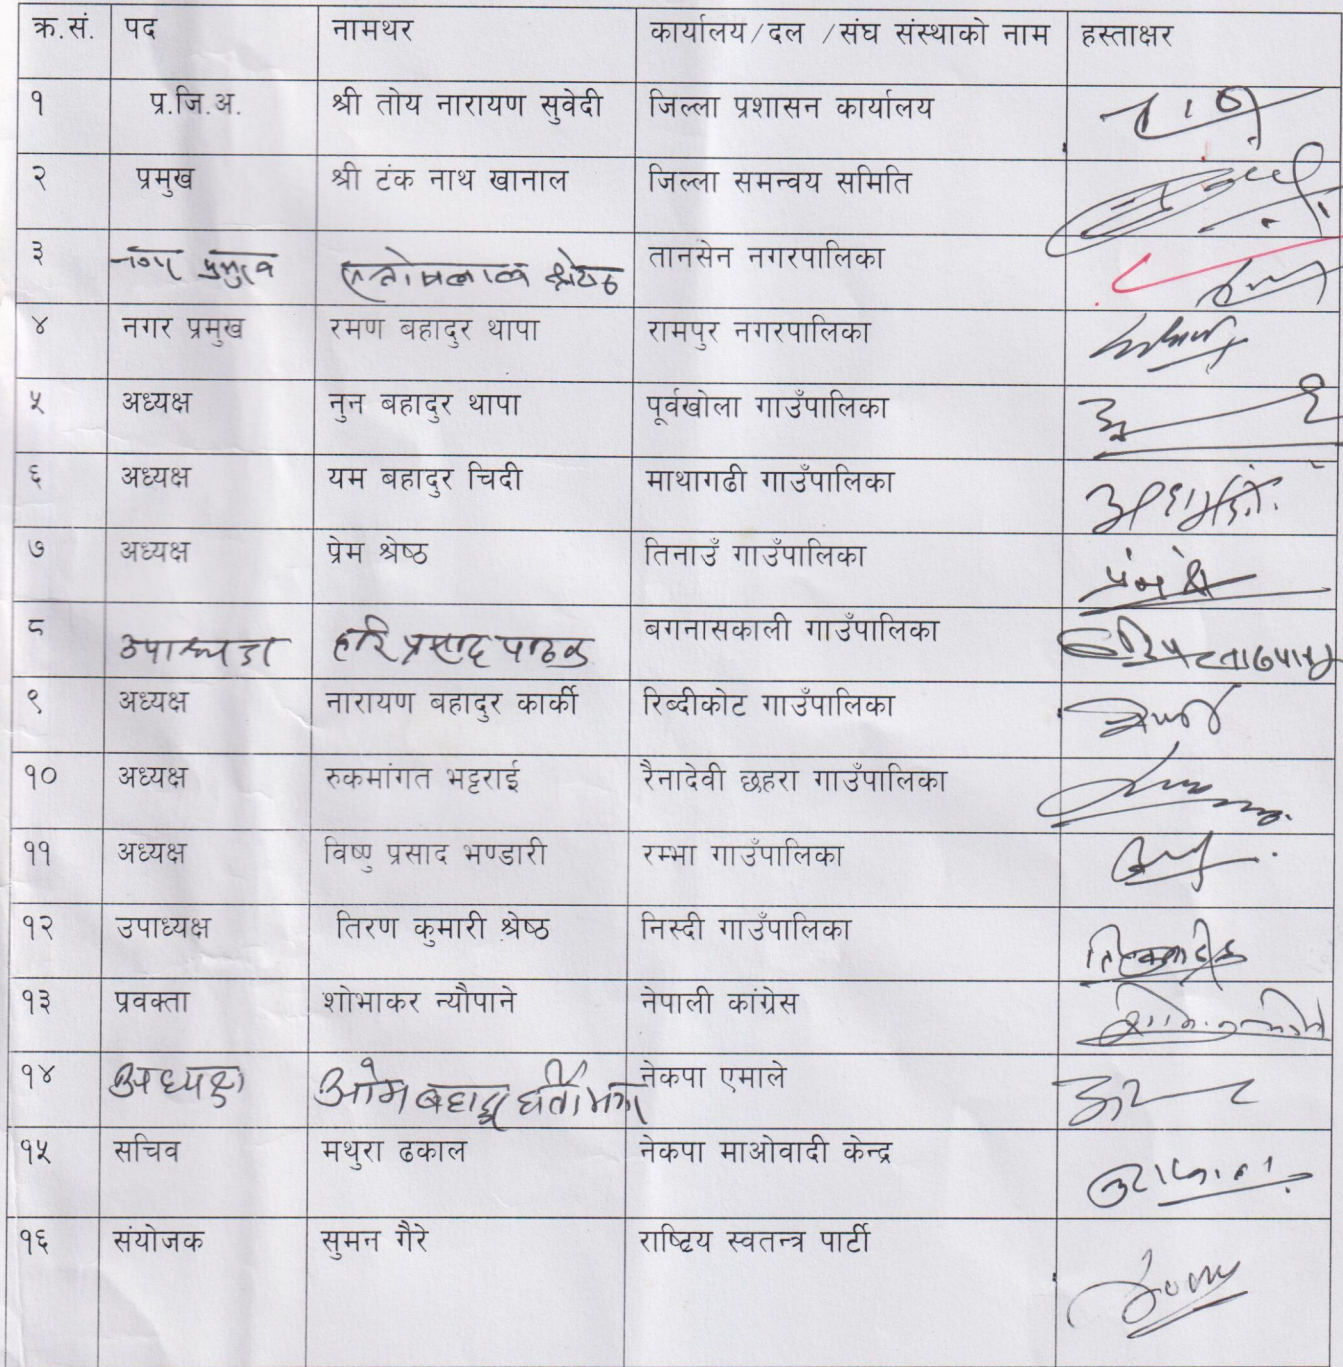 क्र.सं. पद नामथर कार्यालय/दल /संघ संस्थाको नाम हस्ताक्षर
१ प्र.जि.अ. श्री तोय नारायण सुवेदी जिल्ला प्रशासन कार्यालय
२ प्रमुख श्री टंक नाथ खानाल जिल्ला समन्वय समिति
३ नगर प्रमुख सन्तोषलाल श्रेष्ठ तानसेन नगरपालिका
४ नगर प्रमुख रमण बहादुर थापा रामपुर नगरपालिका
५ अध्यक्ष नुन बहादुर थापा पूर्वखोला गाउँपालिका
६ अध्यक्ष यम बहादुर चिदी माथागढी गाउँपालिका
७ अध्यक्ष प्रेम श्रेष्ठ तिनाउँ गाउँपालिका
८ हरि प्रसाद पाठक बगनासकाली गाउँपालिका
९ अध्यक्ष नारायण बहादुर कार्की रिब्दीकोट गाउँपालिका
१० अध्यक्ष रुकमांगत भट्टराई रैनादेवी छहरा गाउँपालिका
११ अध्यक्ष विष्णु प्रसाद भण्डारी रम्भा गाउँपालिका
१२ उपाध्यक्ष तिरण कुमारी श्रेष्ठ निस्दी गाउँपालिका
१३ प्रवक्ता शोभाकर न्यौपाने नेपाली कांग्रेस
१४ अध्यक्ष ओम बहादुर घर्तीमगर नेकपा एमाले
१५ सचिव मथुरा ढकाल नेकपा माओवादी केन्द्र
१६ संयोजक सुमन गैरे राष्ट्रिय स्वतन्त्र पार्टी